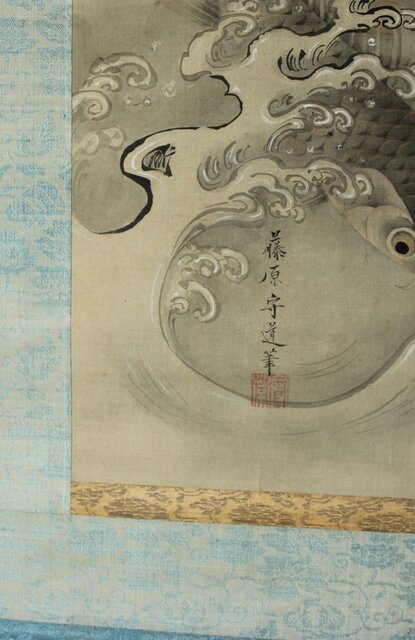 藤原守道筆